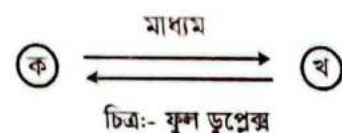 মাধ্যম
ক খ
চিত্র:- ফুল ডুপ্লেক্স